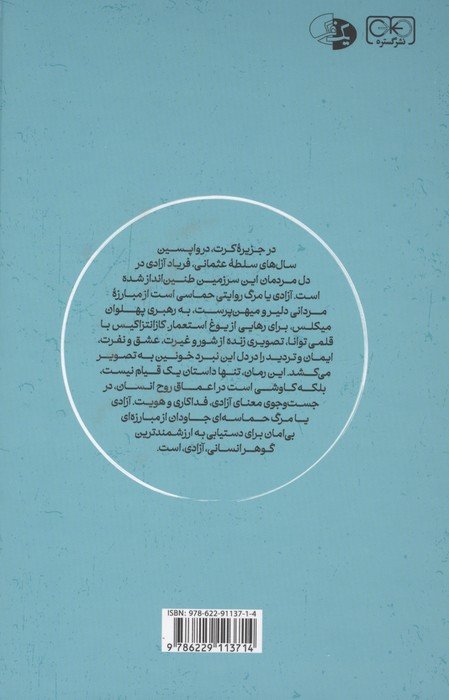 نشرگستره
در جزیرهٔ کرت، در واپسین
سال‌های سلطهٔ عثمانی، فریاد آزادی در
دل مردمان این سرزمین طنین‌انداز شده
است. آزادی یا مرگ روایتی حماسی است از مبارزهٔ
مردانی دلیر و میهن‌پرست، به رهبری پهلوان
میکلس، برای رهایی از یوغ استعمار. کازانتزاکیس با
قلمی توانا، تصویری زنده از شور و غیرت، عشق و نفرت،
ایمان و تردید را در دل این نبرد خونین به تصویر
می‌کشد. این رمان، تنها داستان یک قیام نیست،
بلکه کاوشی است در اعماق روح انسان، در
جست‌وجوی معنای آزادی، فداکاری و هویت. آزادی
یا مرگ حماسه‌ای جاودان از مبارزه‌ای
بی‌امان برای دستیابی به ارزشمندترین
گوهر انسانی، آزادی، است.
ISBN: 978-622-91137-1-4
9 786229 113714